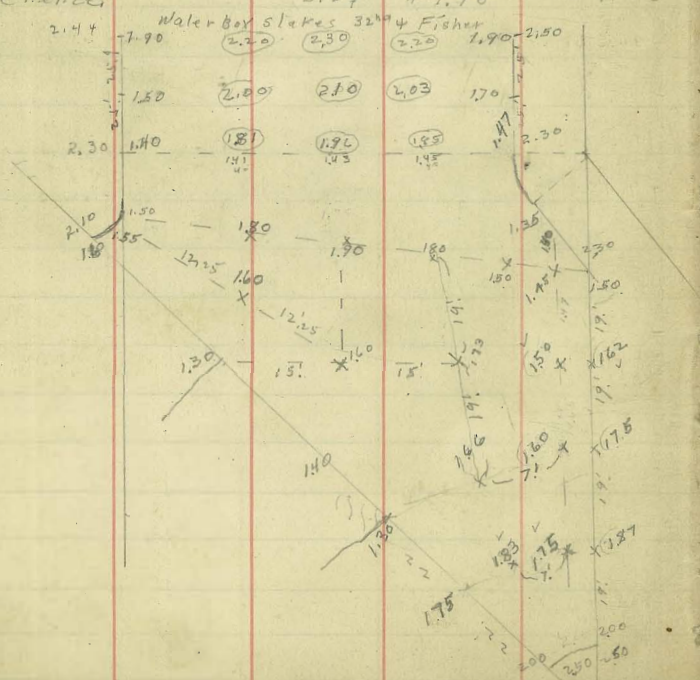 Water Box Stakes 32nd & Fisher
2.44 1.90 2.20 2.30 2.20 1.90 2.50
1.50 2.00 2.10 2.03 1.70
1.47
2.30 1.40 1.81 1.85 2.30
1.41 1.43 1.45
2.10 1.50 1.35
1.55 1.80 1.90 180 1.80 2.30
12.25 150 1.45 1.50
1.60
12.25 19'
1.30 15' 1.60 15' 1.73 1.50 1.62
19' 19'
1.40 1.66 1.60 1.75
7' 19'
1.30 1.83 1.75 1.87
22 7'
1.75 19'
22 2.00
200 250 250